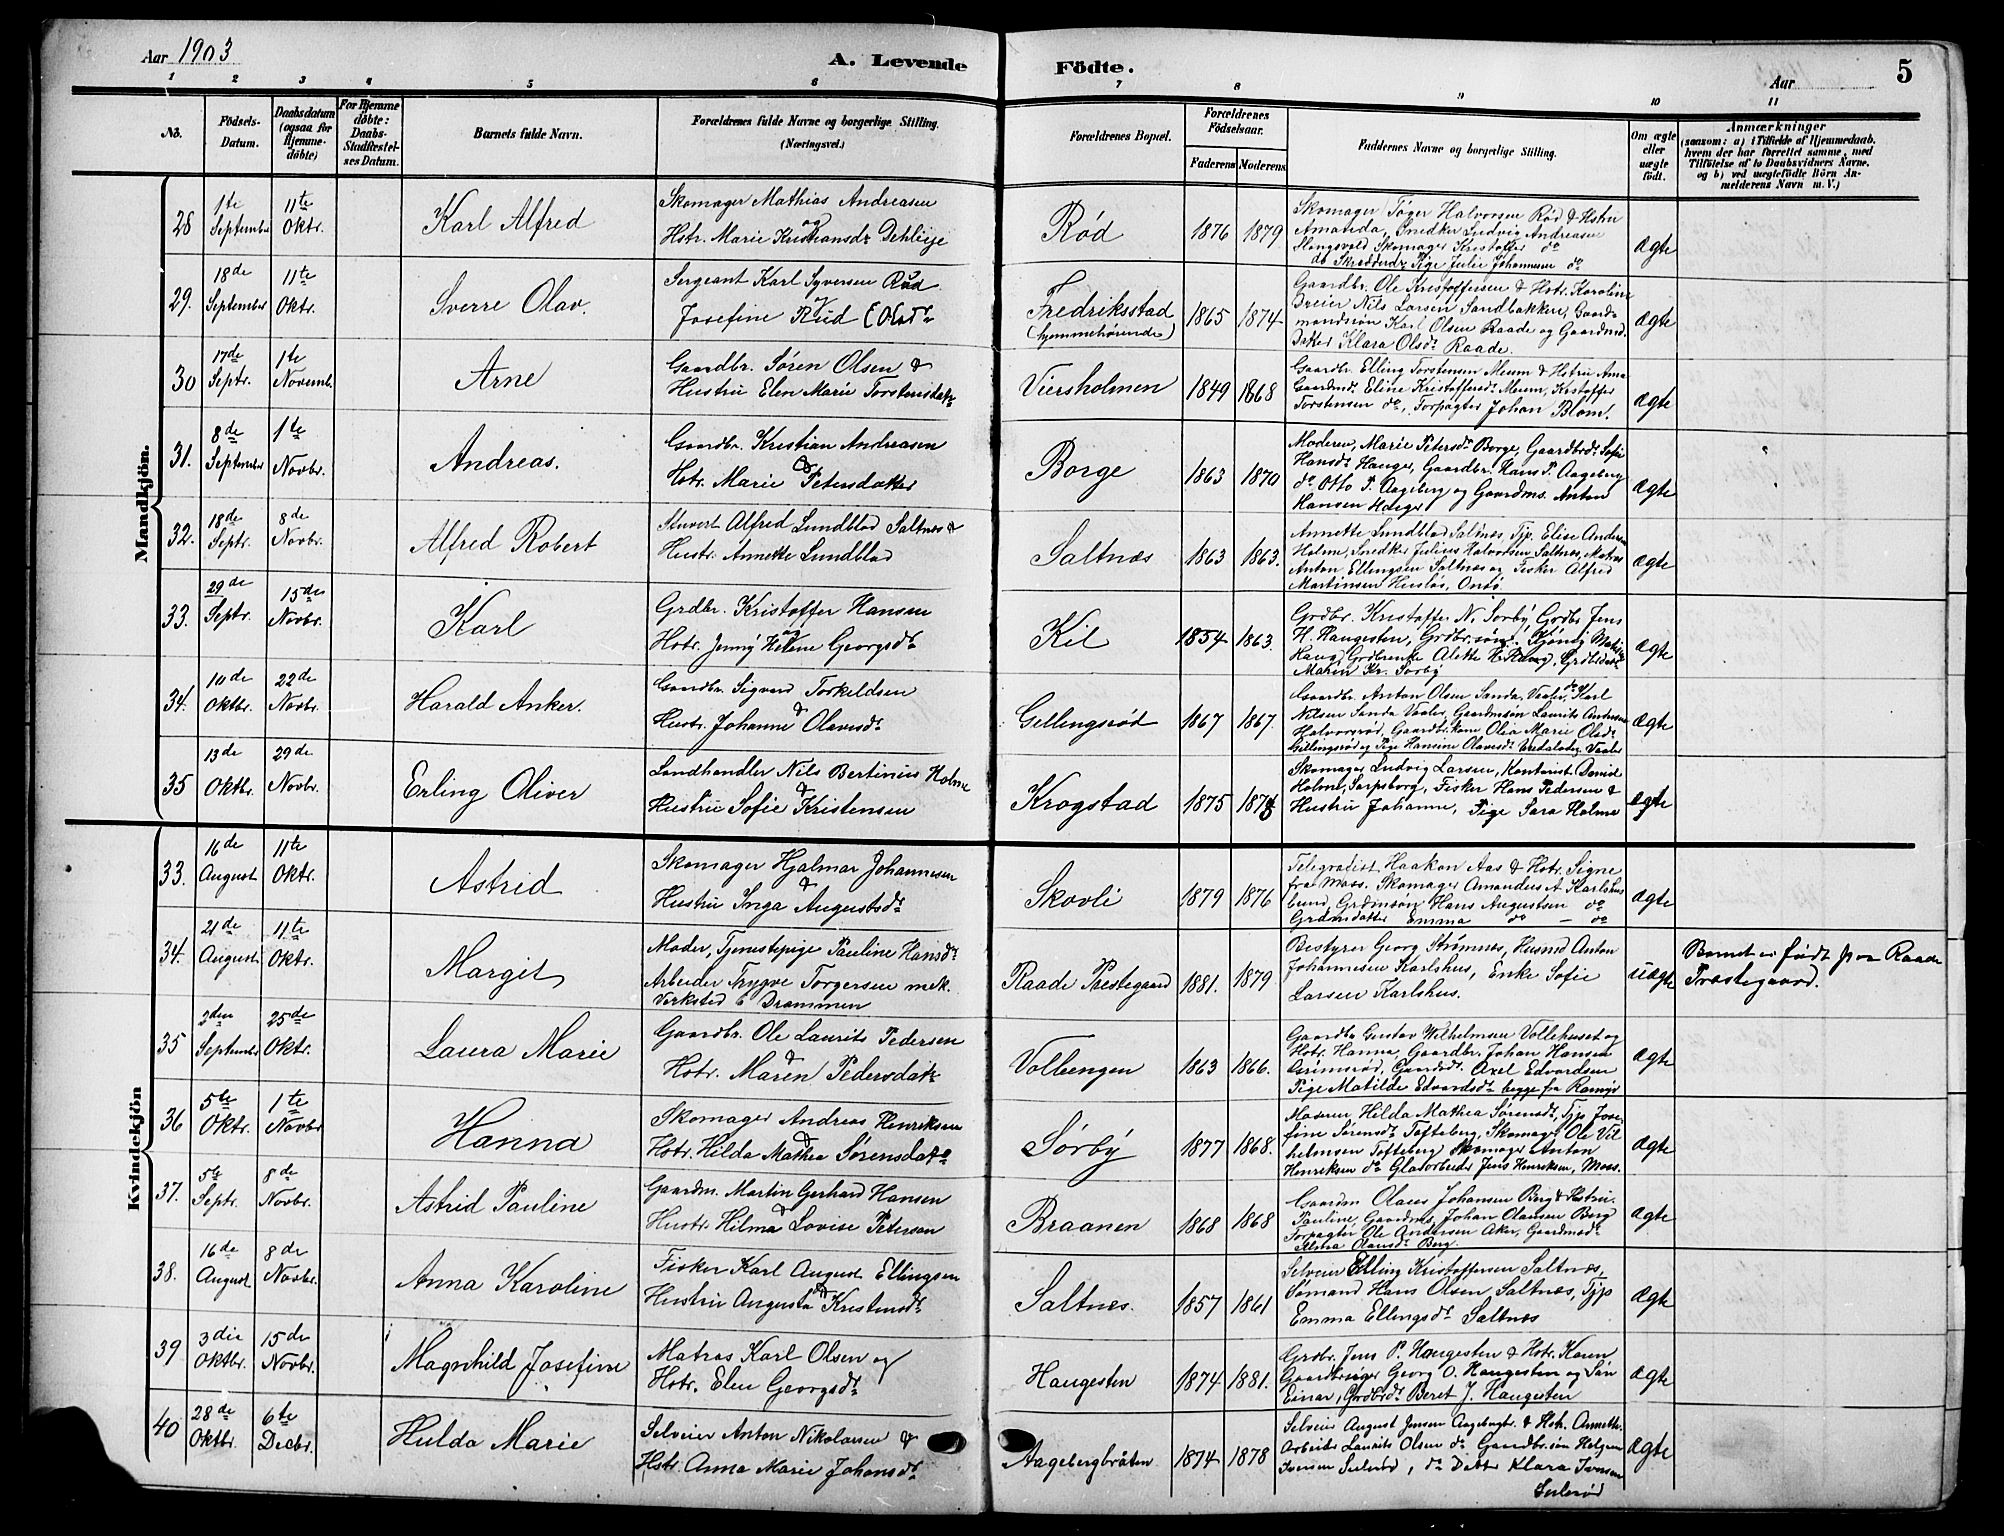 Aar 1903
A. Levende Födte.
Aar
5
1 2 3 4 5 6 7 8 9 10 11
No. Födsels-Datum. Daabsdatum (ogsaa for Hjemmedöbte) For Hjemmedöbte: Daabs-Stadfæstelses Datum. Barnets fulde Navn. Forældrenes fulde Navne og borgerlige Stilling. (Næringsvei.) Forældrenes Bopæl. Forældrenes Födselsaar. Faderens Moderens Faddernes Navne og borgerlige Stilling. Om ægte eller uægte födt. Anmærkninger
(saasom: a) i Tilfælde af Hjemmedaab, hvem der har forrettet samme, med Tilföielse af to Daabsvidners Navne, og b) ved uægtefödte Börn Anmelderens Navn m. V.)
Mandkjön.
28 1te September 11te Oktr. Karl Alfred
Skomager Mathias Andreasen
og
Hstr. Marie Kristiansdr
Rød 1876 1879
Skomager Tøger Halvorsen Rød & Hstru
Amanda, Snedker Ludvig Andreasen
Skomager Kristoffer do
Pige Julie Johannesen do
Ægte
29. 18de September 11te Oktr. Sverre Olav.
Sergeant Karl Syversen Rud
Josefine Rud
Fredriksstad
(hjemmehørende)
1865 1874
Gaardbr. Ole Kristoffersen & Hstr. Karoline
Nils Larsen Sandbakken, Gaard-
mandssøn Karl Olsen Raade og Gaardmd.
Datter Klara Olsdr Raade.
Ægte
30 17de Septr. 1te Novemb. Arne
Gaardbr. Søren Olsen &
Hustru Elen Marie Torstensdatr
Viersholmen 1849 1868
Gaardbr. Elling Torstensen Meum & Hstru Anna
Gaardmdr. Eline Kristoffersdr Meum, Kristoffer
Torstensen do, Forpagter Johan Blom.
Ægte
31. 8de September 1te Novbr. Andreas.
Gaardbr. Kristian Andreasen
&
Hstr. Marie Petersdatter
Borge 1863 1870
Moderen, Marie Petersdr Borge, Gaardbrdr. Sofie
Hansdr Hauger, Gaardbr. Hans P. Aageberg
do Otto P. Aageberg og Gaardms. Anton
Hansen Hauger
Ægte
32. 18de Septr. 8de Novbr. Alfred Robert
Stuvert Alfred Lundblad Saltnes &
Hustr. Annette Lundblad
Saltnæs 1863 1863.
Annette Lundblad Saltnæs, Tjp. Elise Andersen
Holm, Snedker Julius Halvorsen Saltnæs, Matros
Anton Ellingsen Saltnæs og Fisker Alfred
Martinsen Husløs, Onsø
Ægte
33. 29de Septr. 15de Novbr. Karl
Grdbr. Kristoffer Hansen
og
Hstr. Jenny Helene Georgsdr
Kil 1854 1863.
Grdbr. Kristoffer N. Sorby, Grdbr. Jens
H. Haugesten, Grdbr.søn
Haug, Grdbrenke Alette H. Haug, Grdbrdatr
Maren Kr. Sørby
Ægte
34. 10de Oktbr. 22de Novbr. Harald Anker.
Gaardbr. Sigvard Torkeldsen
&
Hustr. Johanne Olavesdr
Gillingsrød 1867 1867.
Gaardbr. Anton Olsen Sanda, Vaaler, do Karl
Nilsen Sanda Vaaler, Gaardmsøn Laurits Andersen
Halvorsrød, Gaardbr.kone Olea Marie Olsdr
Gillingsrød og Pige Hansine Olavesdr Vaaler
Ægte
35 13de Oktbr. 29de Novbr. Erling Oliver
Landhandler Nils Bertinius Holme
&
Hustru Sofie Kristensen
Krogstad 1875 1878
Skomager Ludvig Larsen, Kontorist David
Holme, Sarpsborg, Fisker Hans Pedersen &
Hustru Johanne, Pige Sara Holme
Ægte
Kvindekjön
33. 16de August 11te Oktr. Astrid
Skomager Hjalmar Johannesen
&
Hustru Inga Augustsdr
Skovli 1879 1876
Telegrafist Haakon Aas & Hstr. Signe
fra Moss. Skomager Amandus A. Karlshus
Grdmsøn Hans Augustsen do
Grdmdatter Emma do — do
Ægte
34. 21de August 11te Oktr. Margit
Moder, Tjenestepige Pauline Hansdr
Arbeider Trygve Torgersen mek.
Verksted Drammen
Raade Præstegaard 1881. 1879
Bestyrer Georg Strømnes, Husmd Anton
Johannesen Karlshus, Enke Sofie
Larsen Karlshus.
uægte
Barnet er født paa Raade
Præstegaard.
35 2den September 25de Oktr. Laura Marie
Gaardbr. Ole Laurits Pedersen
&
Hstr. Maren Pedersdatr
Vollengen 1863 1866.
Gaardbr. Gustav Wilhelmsen Vollehuset og
Hstr. Hanna, Gaardbr. Johan Hansen
Grimsrød, Gaardsdr. Axel Edvardsen
Pige Matilde Edvardsdr begge fra Ramsjø
Ægte
36 5te Oktr. 1te Novbr Hanna
Skomager Andreas Henriksen
&
Hstr. Hilda Mathea Sørensdatr
Sørby 1877 1868.
Moderen, Hilda Mathea Sørensdr, Tjp Jose-
fine Sørensdr Tofteberg, Skomager Ole Vil-
helmsen Tofteberg Skomager Anton
Henriksen do Glasarbeider Jens Henriksen, Moss.
Ægte
37. 5te Septr. 8de Novbr. Astrid Pauline
Gaardm. Martin Gerhard Hansen
&
Hustr. Hilma Lovise Petersen
Braanen 1868 1868
Gaardm Olaus Johansen Berg & Hstru
Pauline, Gaardms. Johan Olausen Berg
Forpagter Ole Andersen Aker, Gaardmsdr
Hilma Olausdr Berg.
Ægte
38. 16de August 8de Novbr. Anna Karoline
Fisker Karl August Ellingsen
og
Hustru Augusta Kristensdr
Saltnes. 1857 1861
Selveier Elling Kristoffersen Saltnæs,
Sømand Hans Olsen Saltnæs, Tjp
Emma Ellingsdr Saltnæs
Ægte
39 3die Oktbr. 15de Novbr. Magnhild Josefine
Matros Karl Olsen og
Hstr. Elen Georgsdr
Haugesten 1874 1881.
Grdbr. Jens P. Haugesten & Hstr. Karen
Georg O. Haugesten og Søn
Einar, Grdbrdr Beret J. Haugesten
Ægte
40 28de Oktbr. 6te Decbr. Hulda Marie
Selveier Anton Nikolaisen &
Hstr. Anna Marie Johansdr
Aagebergbråten 1874 1878
Selveier August Jensen Aagebergbr. & Hstr. Annette.
Arbeider Laurits Olsen do Gaardbr.søn Helger
Ivensen Seilerød, do Datter Klara Ivensen
Seilerød
Ægte